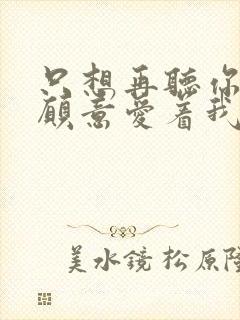 只想再聽你
願意愛著我
美水鏡 松原隆